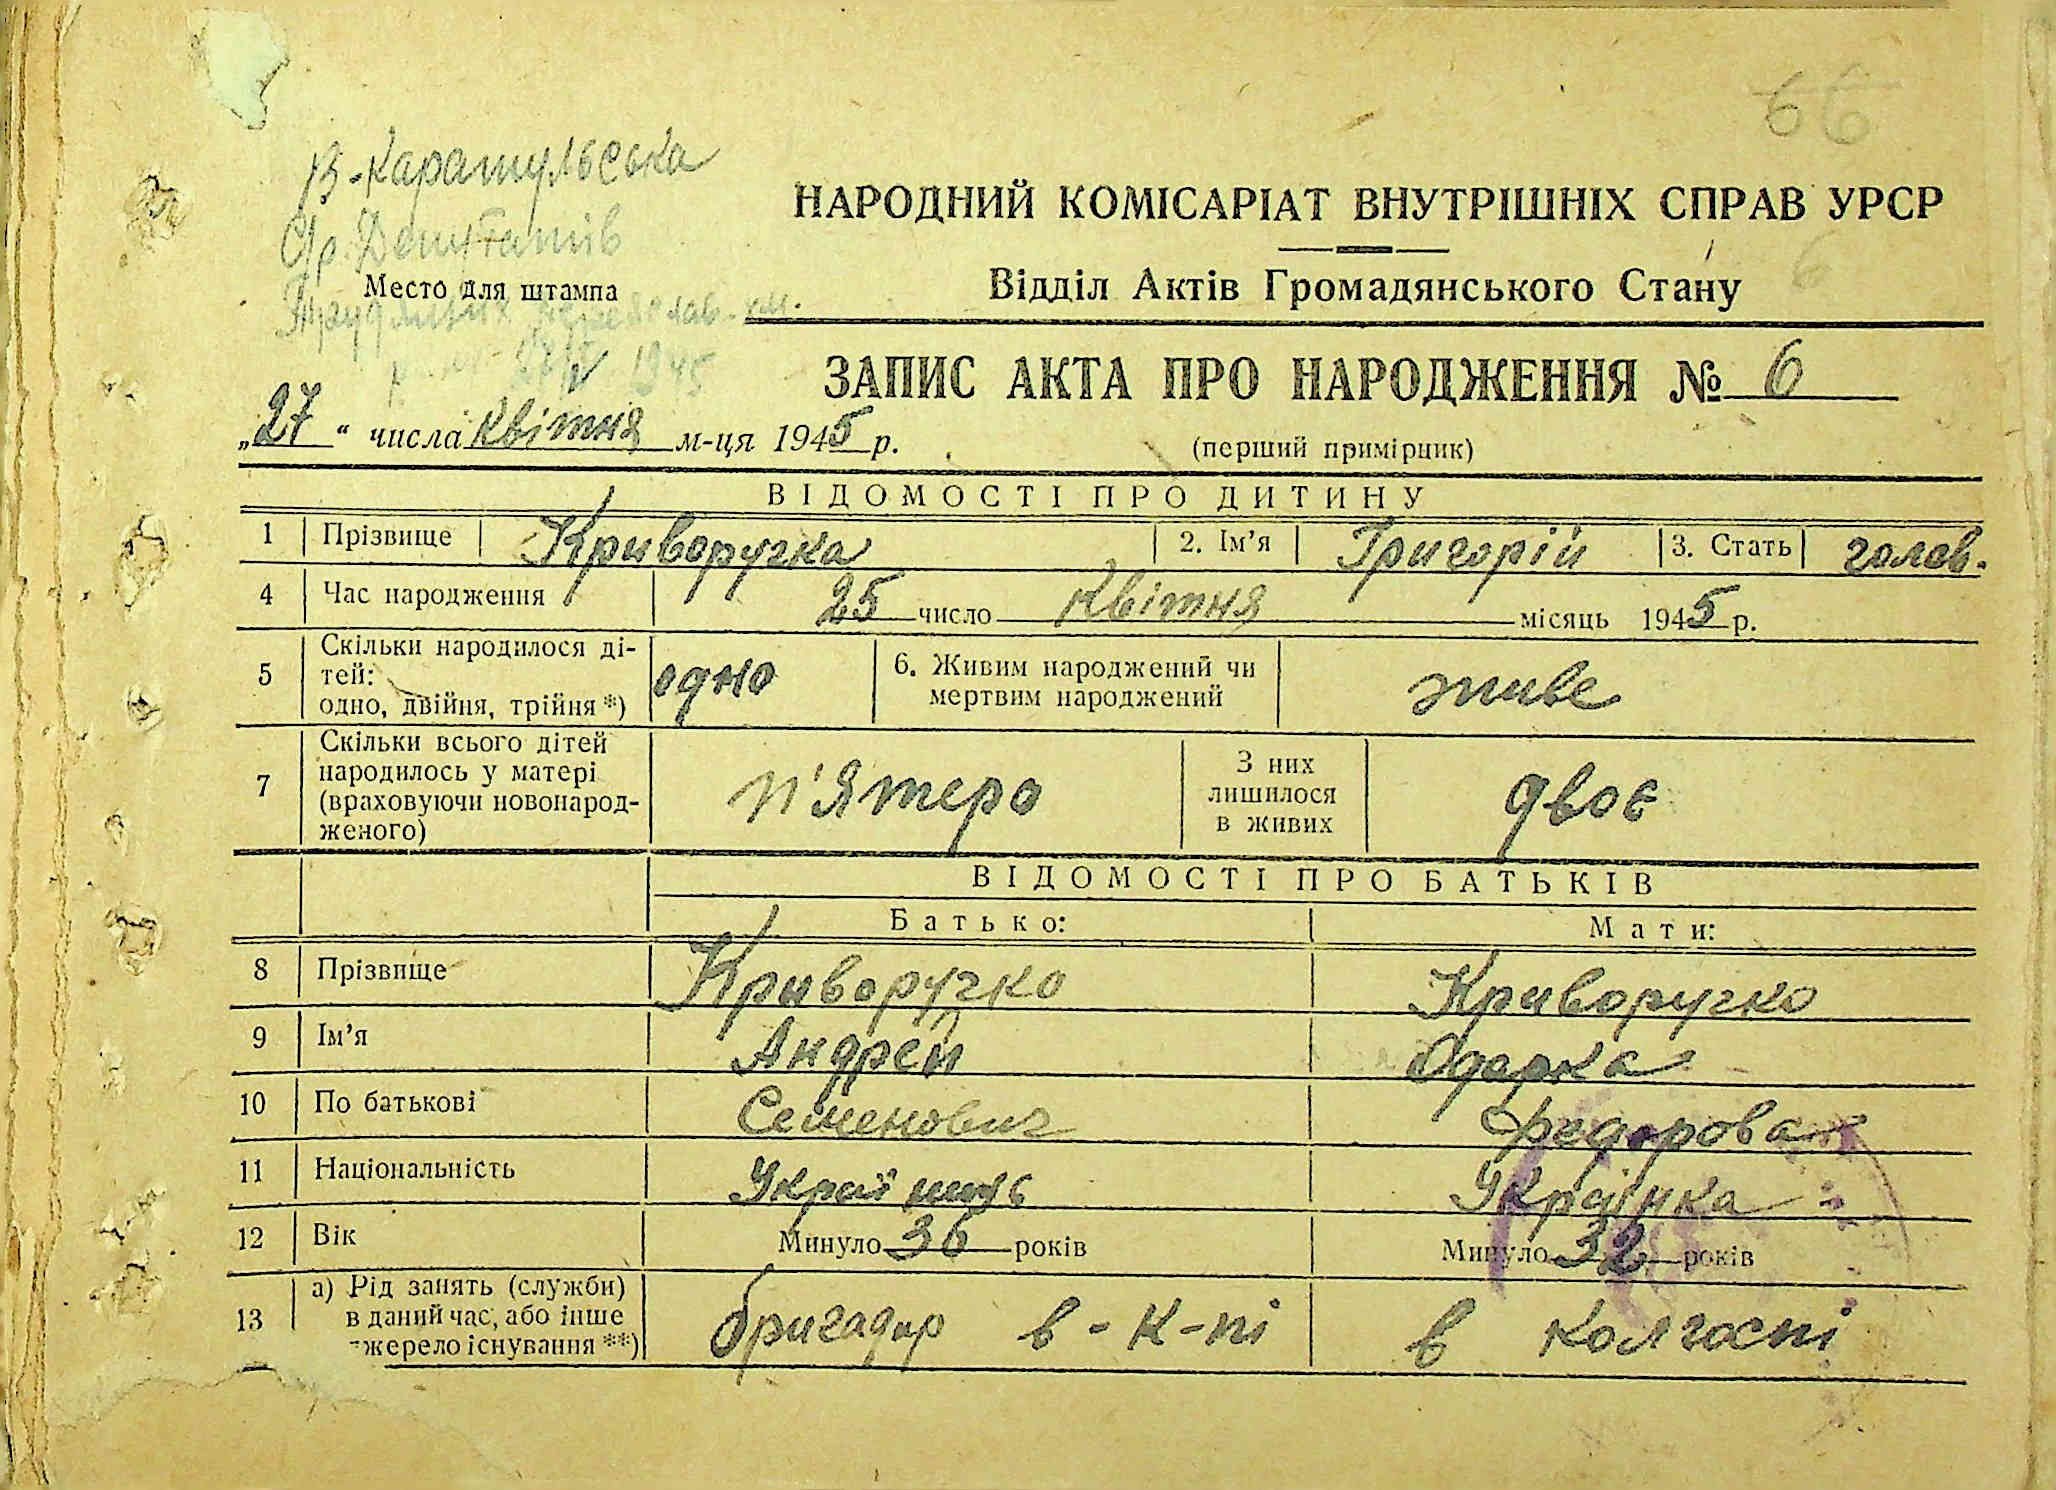 66
В-Каратульська
Ср. Депутатів
Место для штампа
Трудящих Переяслав-хм.
27/IV 1945
НАРОДНИЙ КОМІСАРІАТ ВНУТРІШНІХ СПРАВ УРСР
Відділ Актів Громадянського Стану 6
ЗАПИС АКТА ПРО НАРОДЖЕННЯ № 6
„27“ числа квітня м-ця 1945 р. (перший примірник)
ВІДОМОСТІ ПРО ДИТИНУ
1 Прізвище Криворучка 2. Ім’я Григорій 3. Стать голов.
4 Час народження 25 число квітня місяць 1945 р.
5 Скільки народилося ді-
тей:
одно, двійня, трійня *) одно 6. Живим народжений чи
мертвим народжений живе
7 Скільки всього дітей
народилось у матері
(враховуючи новонарод-
женого) п'ятеро З них
лишилося
в живих двоє
ВІДОМОСТІ ПРО БАТЬКІВ
Батько: Мати:
8 Прізвище Криворучко Криворучко
9 Ім’я Андрей Одарка
10 По батькові Семенович Федорова
11 Національність Українць Українка
12 Вік Минуло 36 років Минуло 32 років
13 а) Рід занять (служби)
в даний час, або інше
жерело існування **) бригадир в-к-пі в колгоспі